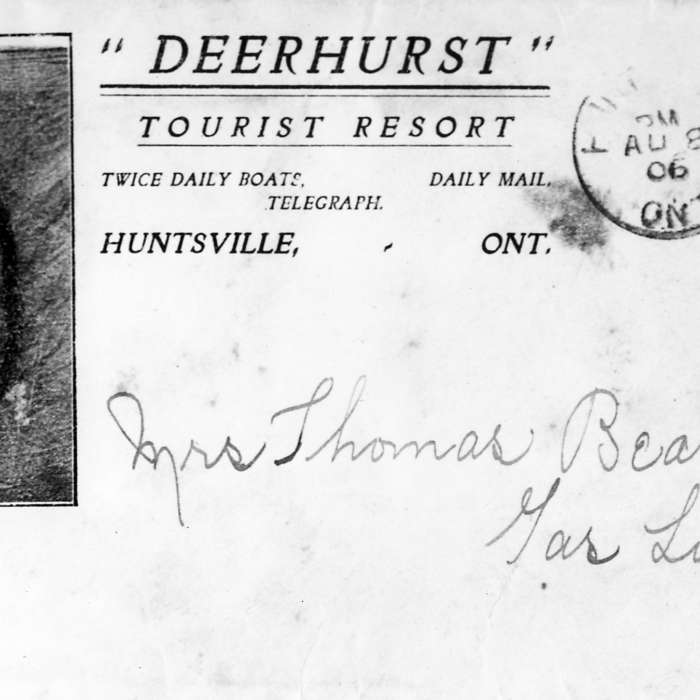 " DEERHURST "
TOURIST RESORT
TWICE DAILY BOATS, DAILY MAIL,
TELEGRAPH.
HUNTSVILLE, - ONT.
PM
AU 8
06
ONT
Mrs Thomas Bea
Gar L